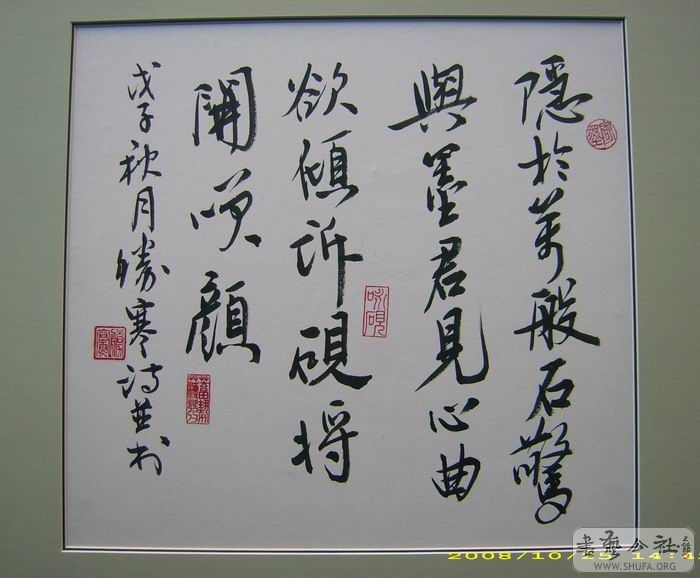 隱於萬般石驚
與墨君見心曲
欲傾訴硯將
開咲顔
戊子秋月勝寒詩並書
吟硯
2008/10/25 14:4
書藝公社
WWW.SHUFA.ORG